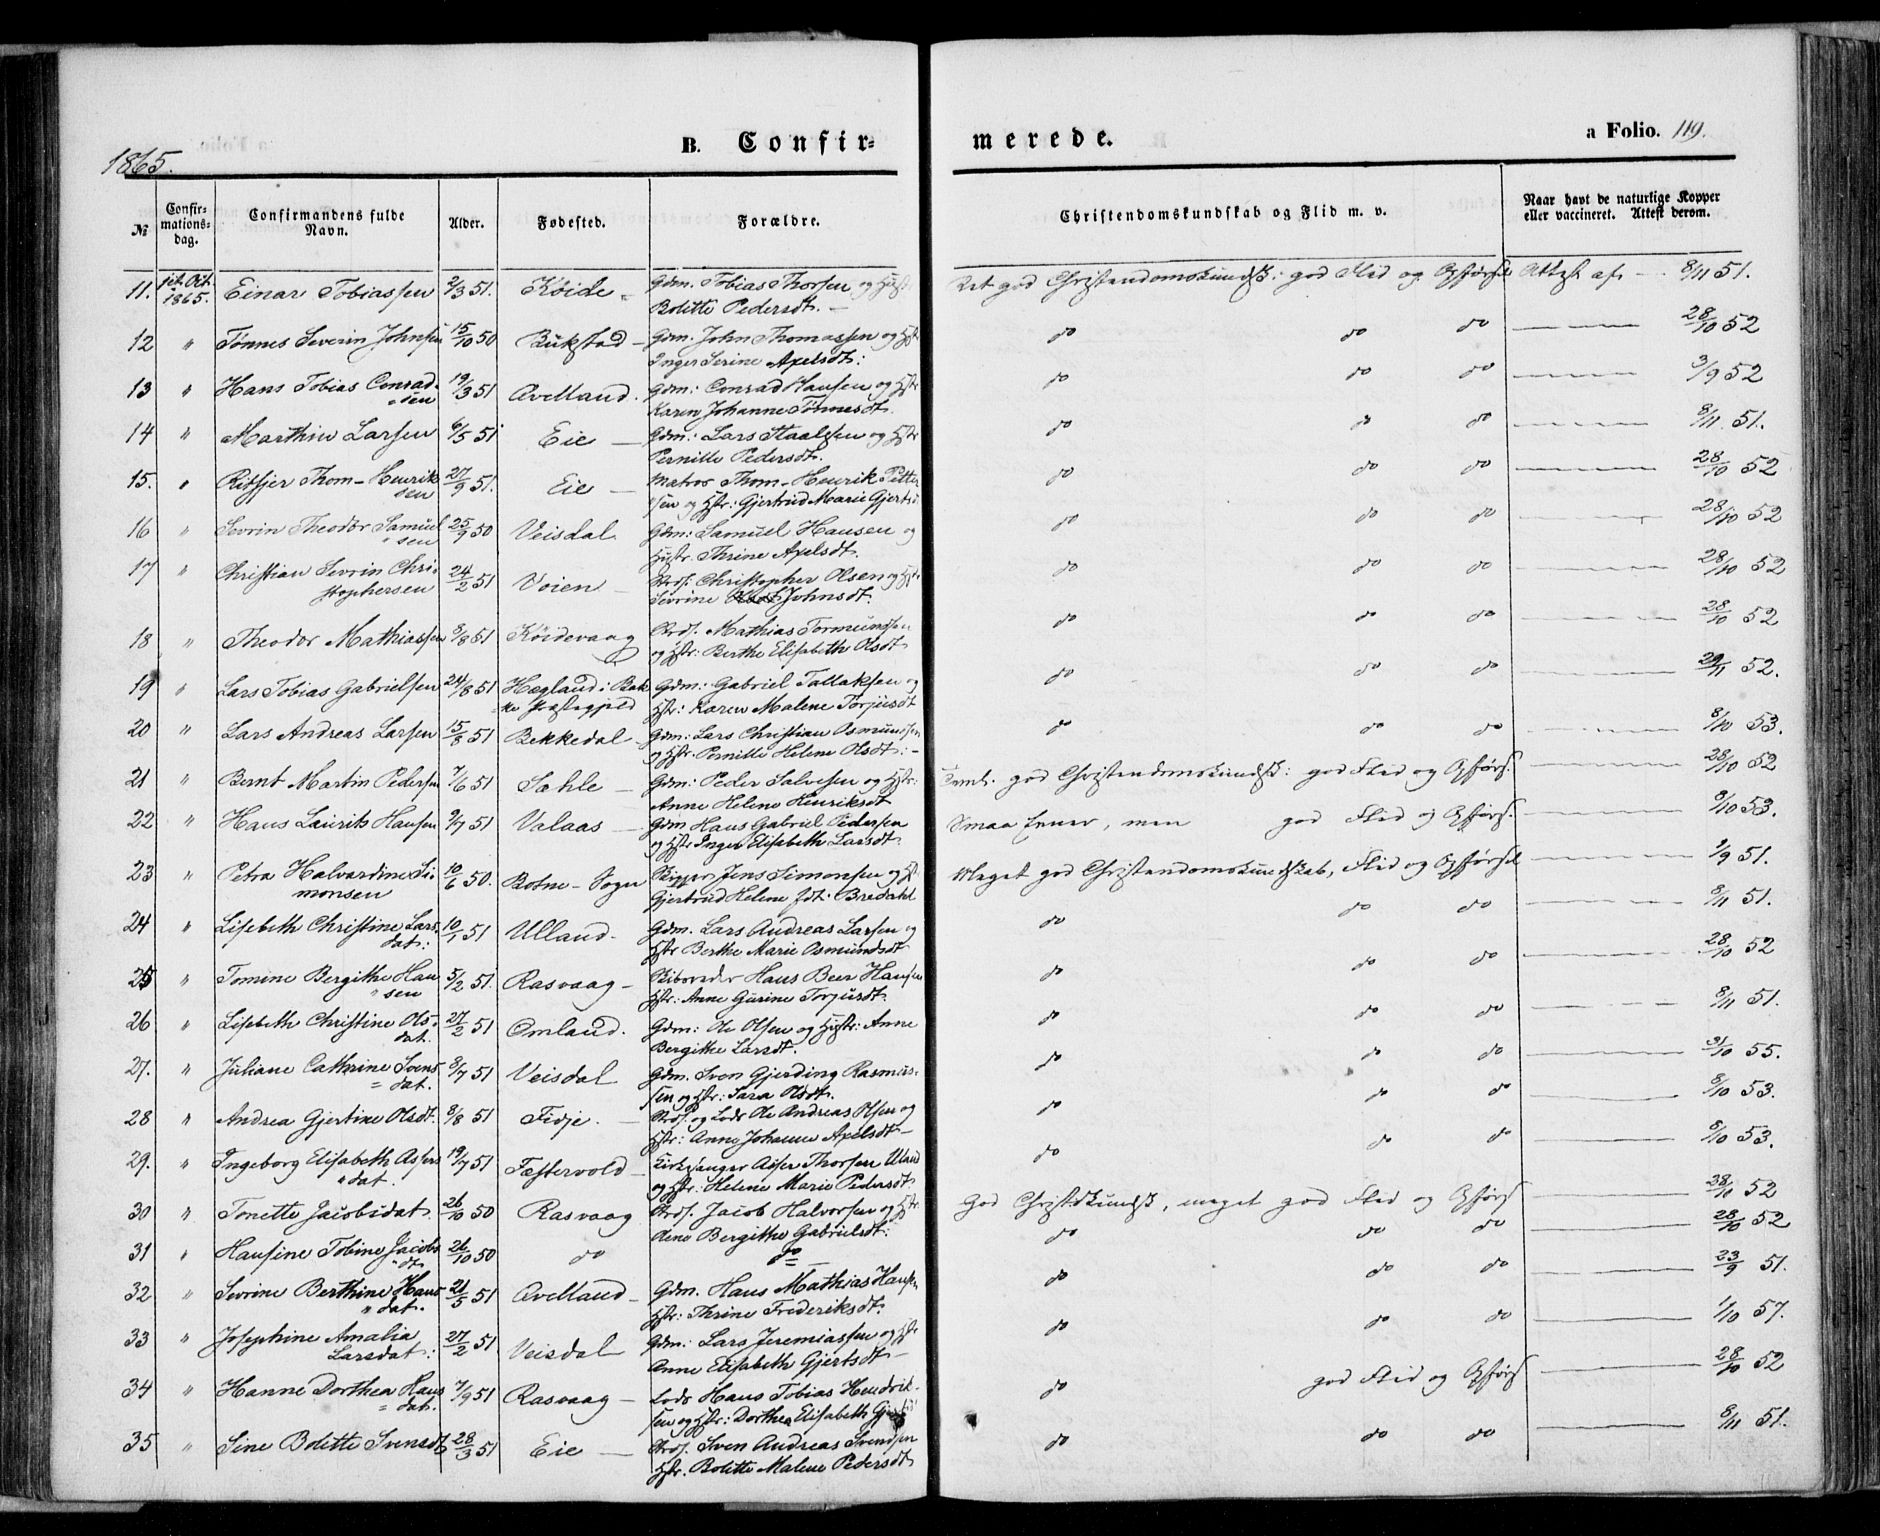 1865.
B. Confir-
merede.
a Folio. 119.
№ Confir-mations-dag. Confirmandens fulde Navn. Alder. Fødested. Forældre. Christendomskundskab og Flid m. v. Naar havt de naturlige Kopper eller vaccineret. Attest derom.
11. 1st Oct. 1865. Einar Tobiassen 2/3 51. Kóide Gdm. Tobias Thorsen og Hustr Bolette Pedersdt. Ret god Christendomskundsk: god Flid og Opførsel Attest af 8/11 51.
12 " Tønnes Severin Johnsen 15/10 50 Bukstad Gdm. John Thomassen og Hstr Inger Serine Axelsdt: do do do 28/10 52
13 " Hans Tobias Conrad-sen 19/3 51 Ovelland. Gdm: Conrad Hansen og Hstr Karen Johanne Tønnesdt. do do do 3/9 52
14 " Marthin Larsen 6/5 51 Eie Gdm: Lars Staalesen og Hstr Pernille Pedersdt. do do do 8/11 51.
15. " Reisjer Thom-Henrik-sen 27/9 51. Eie Matros Thom-Henrik Petter-sen og Hstr: Gjertrud Marie Gjertsd do do do 28/10 52
16 " Sevrin Theodor Samuel-sen 25/9 50 Veisdal Gdm: Samuel Hansen og Hustr. Thrine Axelsdt. do do do 28/10 52
17 " Christian Sevrin Chri-stophersen 24/2 51 Voien Strds. Christopher Olsen og Hstr Sevrine Johnsdt. do do do 28/10 52
18 " Theodor Mathiassen 8/8 51 Kóidevaag Strds. Mathias Tormundsen og Hstr: Berthe Elisabeth Olsdt do do do 28/10 52
19 " Lars Tobias Gabrielsen 24/8 51 Hægland i Bak-ke Præstegjeld Gdm: Gabriel Tallaksen og Hstr: Karen Malene Torjusdt do do do 29/11 52.
20 " Lars Andreas Larsen 15/8 51 Bekkedal Gdm: Lars Christian Osmundsen og Hstr Pernille Helene Olsdt: do do do 8/10 53.
21 " Bernt Martin Pedersen 7/6 51 Sæhle Gdm: Peder Salvesen og Hstr: Anne Helene Henriksdt Teml. god Christendomskundsk: god Flid og Opførs. 28/10 52
22 " Hans Lauritz Hansen 9/7 51 Valaas Gdm Hans Gabriel Pedersen og Hstr Inger Elisabeth Larsdt. Smaa Evner, men god Flid og Opførs. 8/10 53.
23 " Petra Halvardine Si-monsen 10/6 50. Botne-Sogn Skipper Jens Simonsen og Hstr Gjertrud Helene fdt. Bredahl Meget god Christendomskundskab, Flid og Opførsel 1/9 51.
24 " Lisebeth Christine Lars-dat: 10/1 51 Ulland. Gdm. Lars Andreas Larsen og Hstr Berthe Marie Osmundsdt do do do 8/11 51.
25 " Tomine Bergithe Han-sen 5/2 51. Rasvaag Skibsreder Hans Beer Hansen Hstr: Anne Gurine Torjusdt. do do do 28/10 52
26 " Lisebeth Christine Ols-dat. 27/2 51 Omland. Gdm: Ole Olsen og Hustr: Anne Bergithe Larsdt. do do do 8/11 51.
27. " Juliane Cathrine Svens-dat. 8/7 51 Veisdal Gdm. Sven Gjerding Rasmus-sen og Hstr: Sara Olsdt. do do do 31/10 55.
28 " Andrea Gjertine Olsdt. 8/8 51 Fidje. Strds. og Lods Ole Andreas Olsen og Hstr: Anne Johanne Axelsdt do do do 8/10 53.
29. " Ingeborg Elisabeth Assers-dat. 19/7 51 Fæstervold Kirkesanger Asser Thorsen Uland og Hstr: Helene Marie Pedersdt do do do 8/10 53.
30 " Tonette Jacobsdat 26/10 50 Rasvaag Strds. Jacob Halvorsen og Hstr. Lene Bergithe Gabrielsdt: God Christdkundsk, meget god Flid og Opførs 28/10 52
31 " Hansine Tobine Jacobs-dt 26/10 50 do do do do do 28/10 52
32 " Sevrine Berthine Hans-dat. 21/5 51 Ovelland Gdm. Hans Mathias Hansen Hstr: Thrine Frederiksdt. do do do 23/9 51.
33 " Josephine Amalia Larsdat: 27/2 51 Veisdal Gdm: Lars Jeremiassen og Hstr Anne Elisabeth Gjertsdt do do do 1/10 57.
34 " Hanne Dorthea Hans-dat. 7/9 51 Rasvaag Lods Hans Tobias Hendrik-sen og Hstr: Dorthea Elisabeth do god Flid og Opførs 28/10 52
35 " Sine Bolette Svensdt 28/3 51 Eie Strds. Sven Andreas Svendsen Hstr. Bolette Malene Pedersdt do do do 8/11 51.